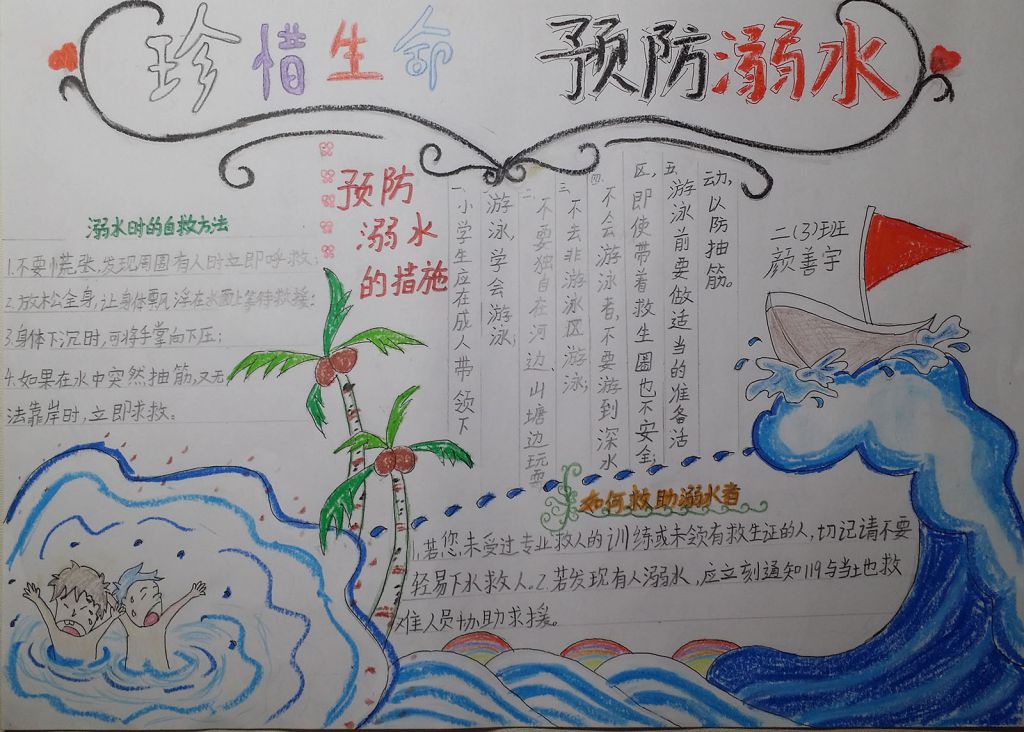 珍惜生命 预防溺水
溺水时的自救方法
1.不要慌张,发现周围有人时立即呼救;
2.放松全身,让身体飘浮在水面上等待救援;
3.身体下沉时,可将手掌向下压;
4.如果在水中突然抽筋,又无
法靠岸时,立即求救。
预防
溺水
的措施
一、小学生应在成人带领下
游泳,学会游泳;
二、不要独自在河边、山塘边玩耍
三、不去非游泳区游泳;
四、不会游泳者,不要游到深水
区,即使带着救生圈也不安全;
五、游泳前要做适当的准备活
动,以防抽筋。
二(3)班
颜善宇
如何救助溺水者
1.若您未受过专业救人的训练或未领有救生证的人,切记请不要
轻易下水救人。2.若发现有人溺水,应立刻通知119与当地救
难人员协助求援。